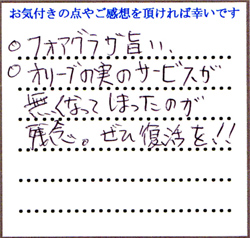 お気付きの点やご感想を頂ければ幸いです
○フォアグラが旨い、
○オリーブの実のサービスが
無くなってしまったのが
残念。ぜひ復活を!!